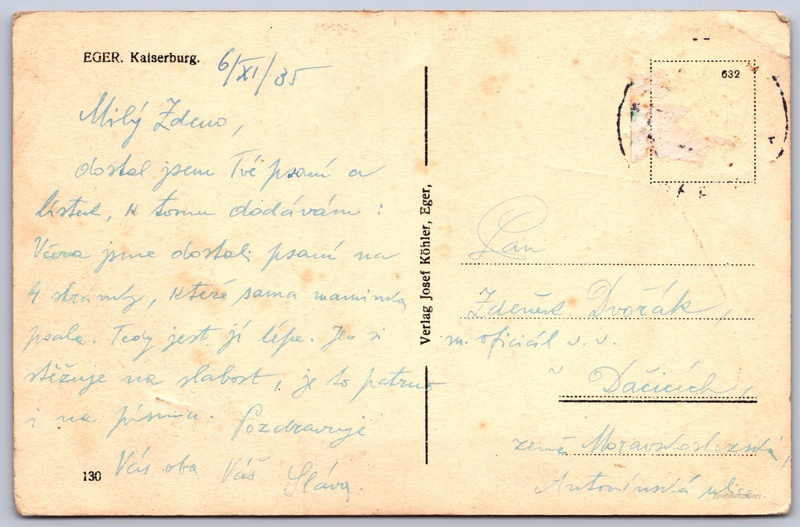 EGER. Kaiserburg.
6/XI/35
632
Milý Zdeno,
dostal jsem Tvé psaní a
lístek, k tomu dodávám:
Včera jsme dostali psaní na
4 stránky, které sama maminka
psala. Tedy jest jí lépe. Jen si
stěžuje na slabost, je to patrno
i na písmu. Pozdravuje
Vás oba Váš Sláva.
130
Verlag Josef Köhler, Eger,
Pan
Zdeněk Dvořák,
m. oficiál v. v.
v Dačicích,
země Moravskoslezská,
Antonínská ulice.